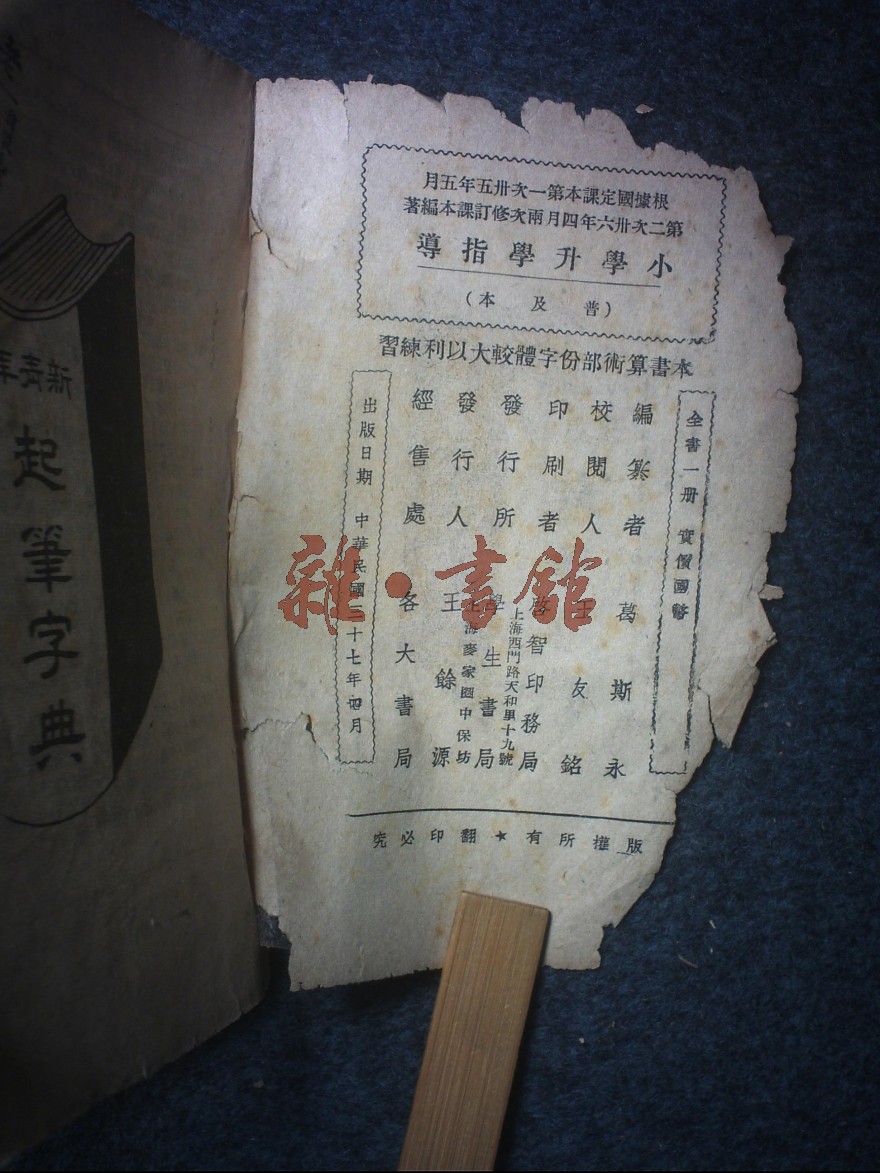 根據國定課本第一次卅五年五月
第二次卅六年四月兩次修訂課本編著
小學升學指導
（普及本）
本書算術部份字體較大以利練習
全書一册 實價國幣
編纂者 葛斯永
校閱人 王友銘
印刷者 啓智印務局
上海西門路天和里十九號
發行所 學生書局
上海麥家圈中保坊
發行人 王餘源
經售處 各大書局
出版日期 中華民國三十七年四月
版權所有★翻印必究
新青年
起筆字典
雜·書館